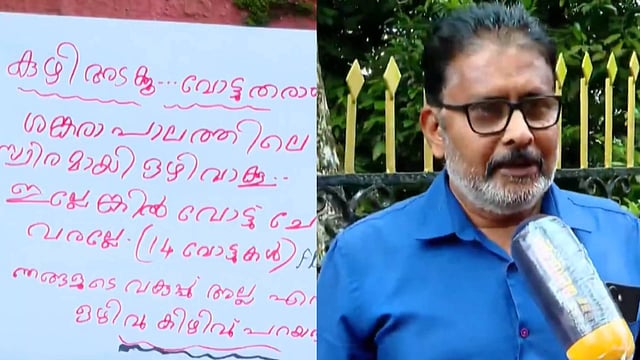 കുഴി അടക്കൂ... വോട്ടു തരാം
ശങ്കരാ പാലത്തിലെ
സ്ഥിരമായി ഒഴിവാക്കൂ..
ഇല്ലേങ്കിൽ വോട്ടു ചോ
വരല്ലേ. (14 വോട്ടുകൾ)
ഞങ്ങളുടെ വകുപ്പ് അല്ല എന്ന
ഒഴിവു കിഴിവ് പറയ